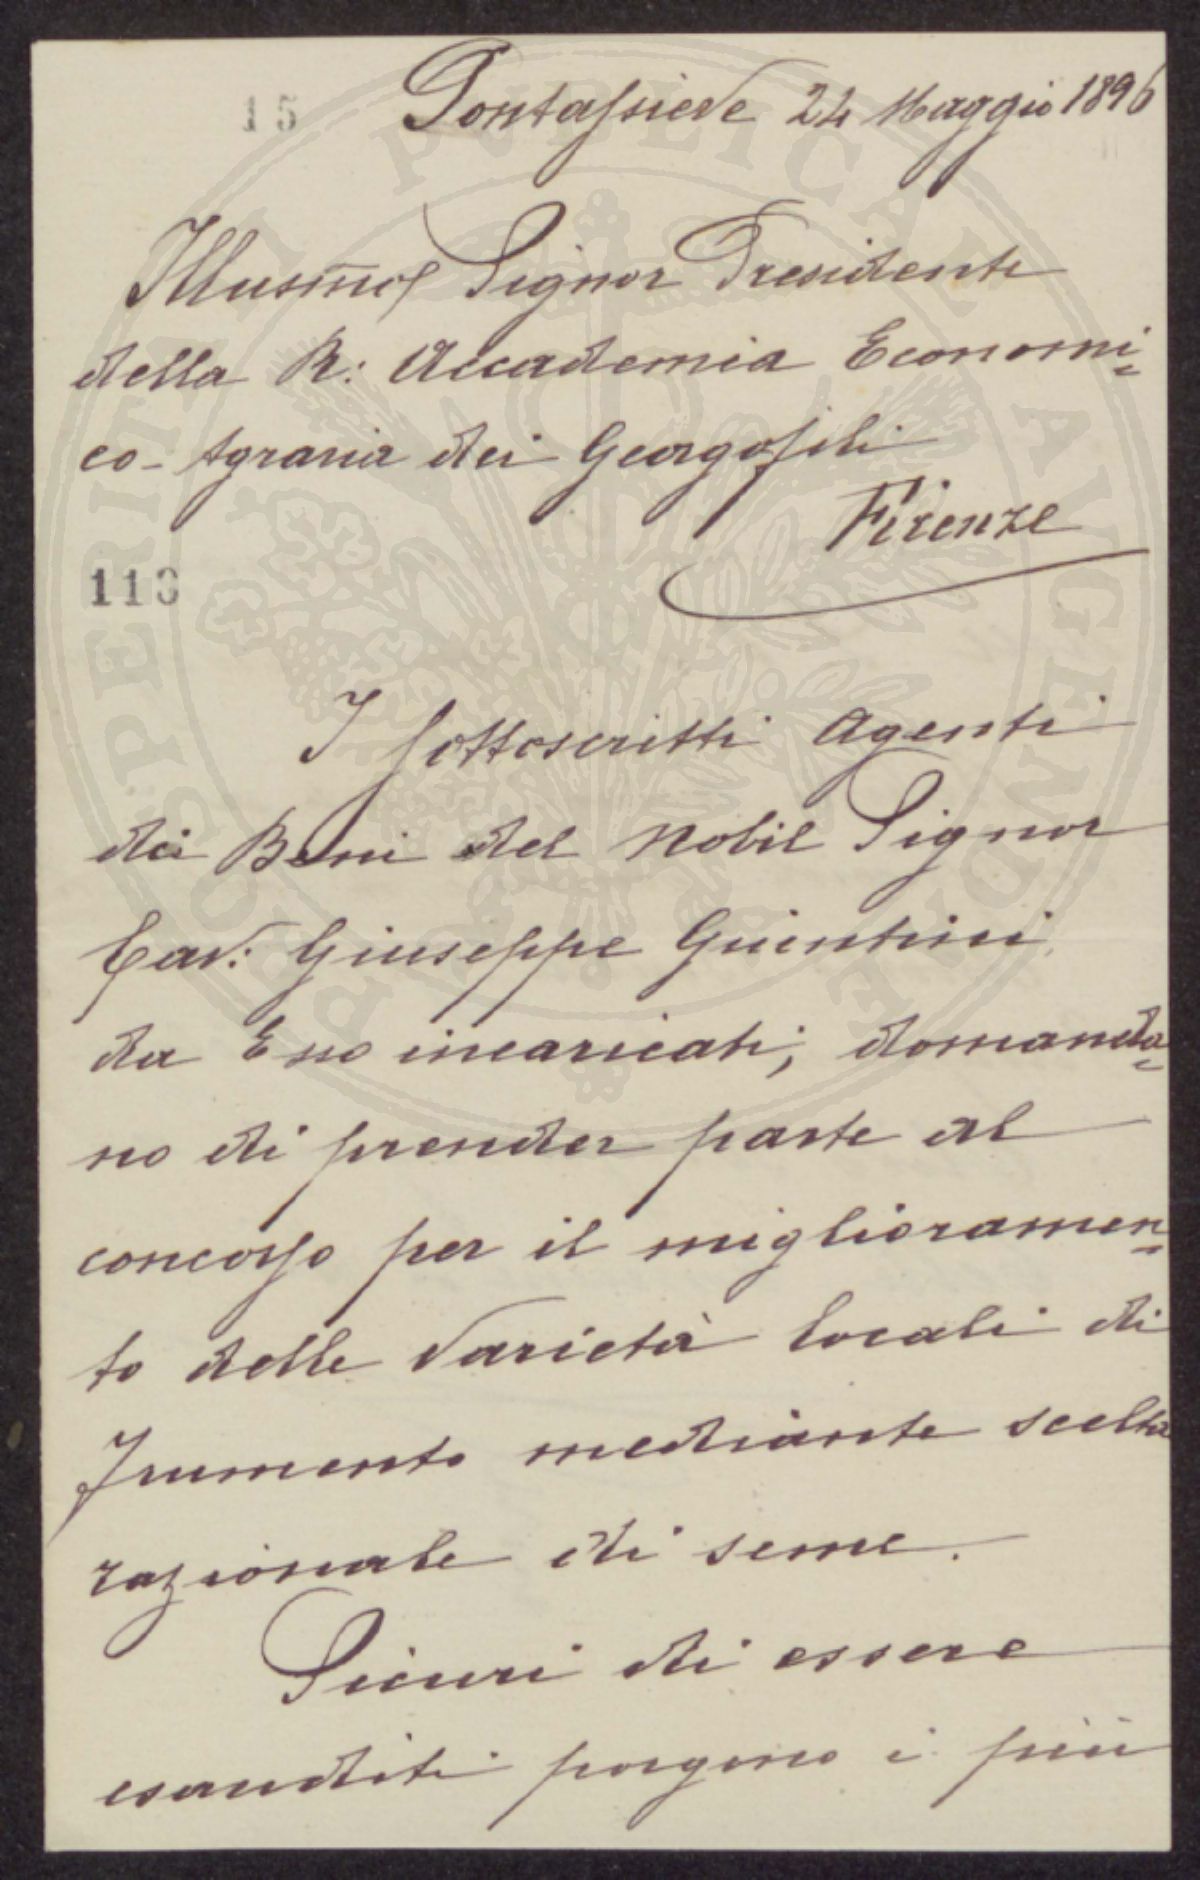 15
Pontassieve 24 Maggio 1896
Illusmo Signor Presidente
della R: Accademia Economi=
co-Agraria dei Georgofili
Firenze
113
I sottoscritti Agenti
dei Beni del Nobil Signor
Cav: Giuseppe Guintini
da Esso incaricati, domanda=
no di prender parte al
concorso per il miglioramen=
to delle varietà locali di
frumento mediante scelta
razionale di seme.
Sicuri di essere
esauditi porgono i più
PROSPERITATI PUBLICAE AVGENDAE